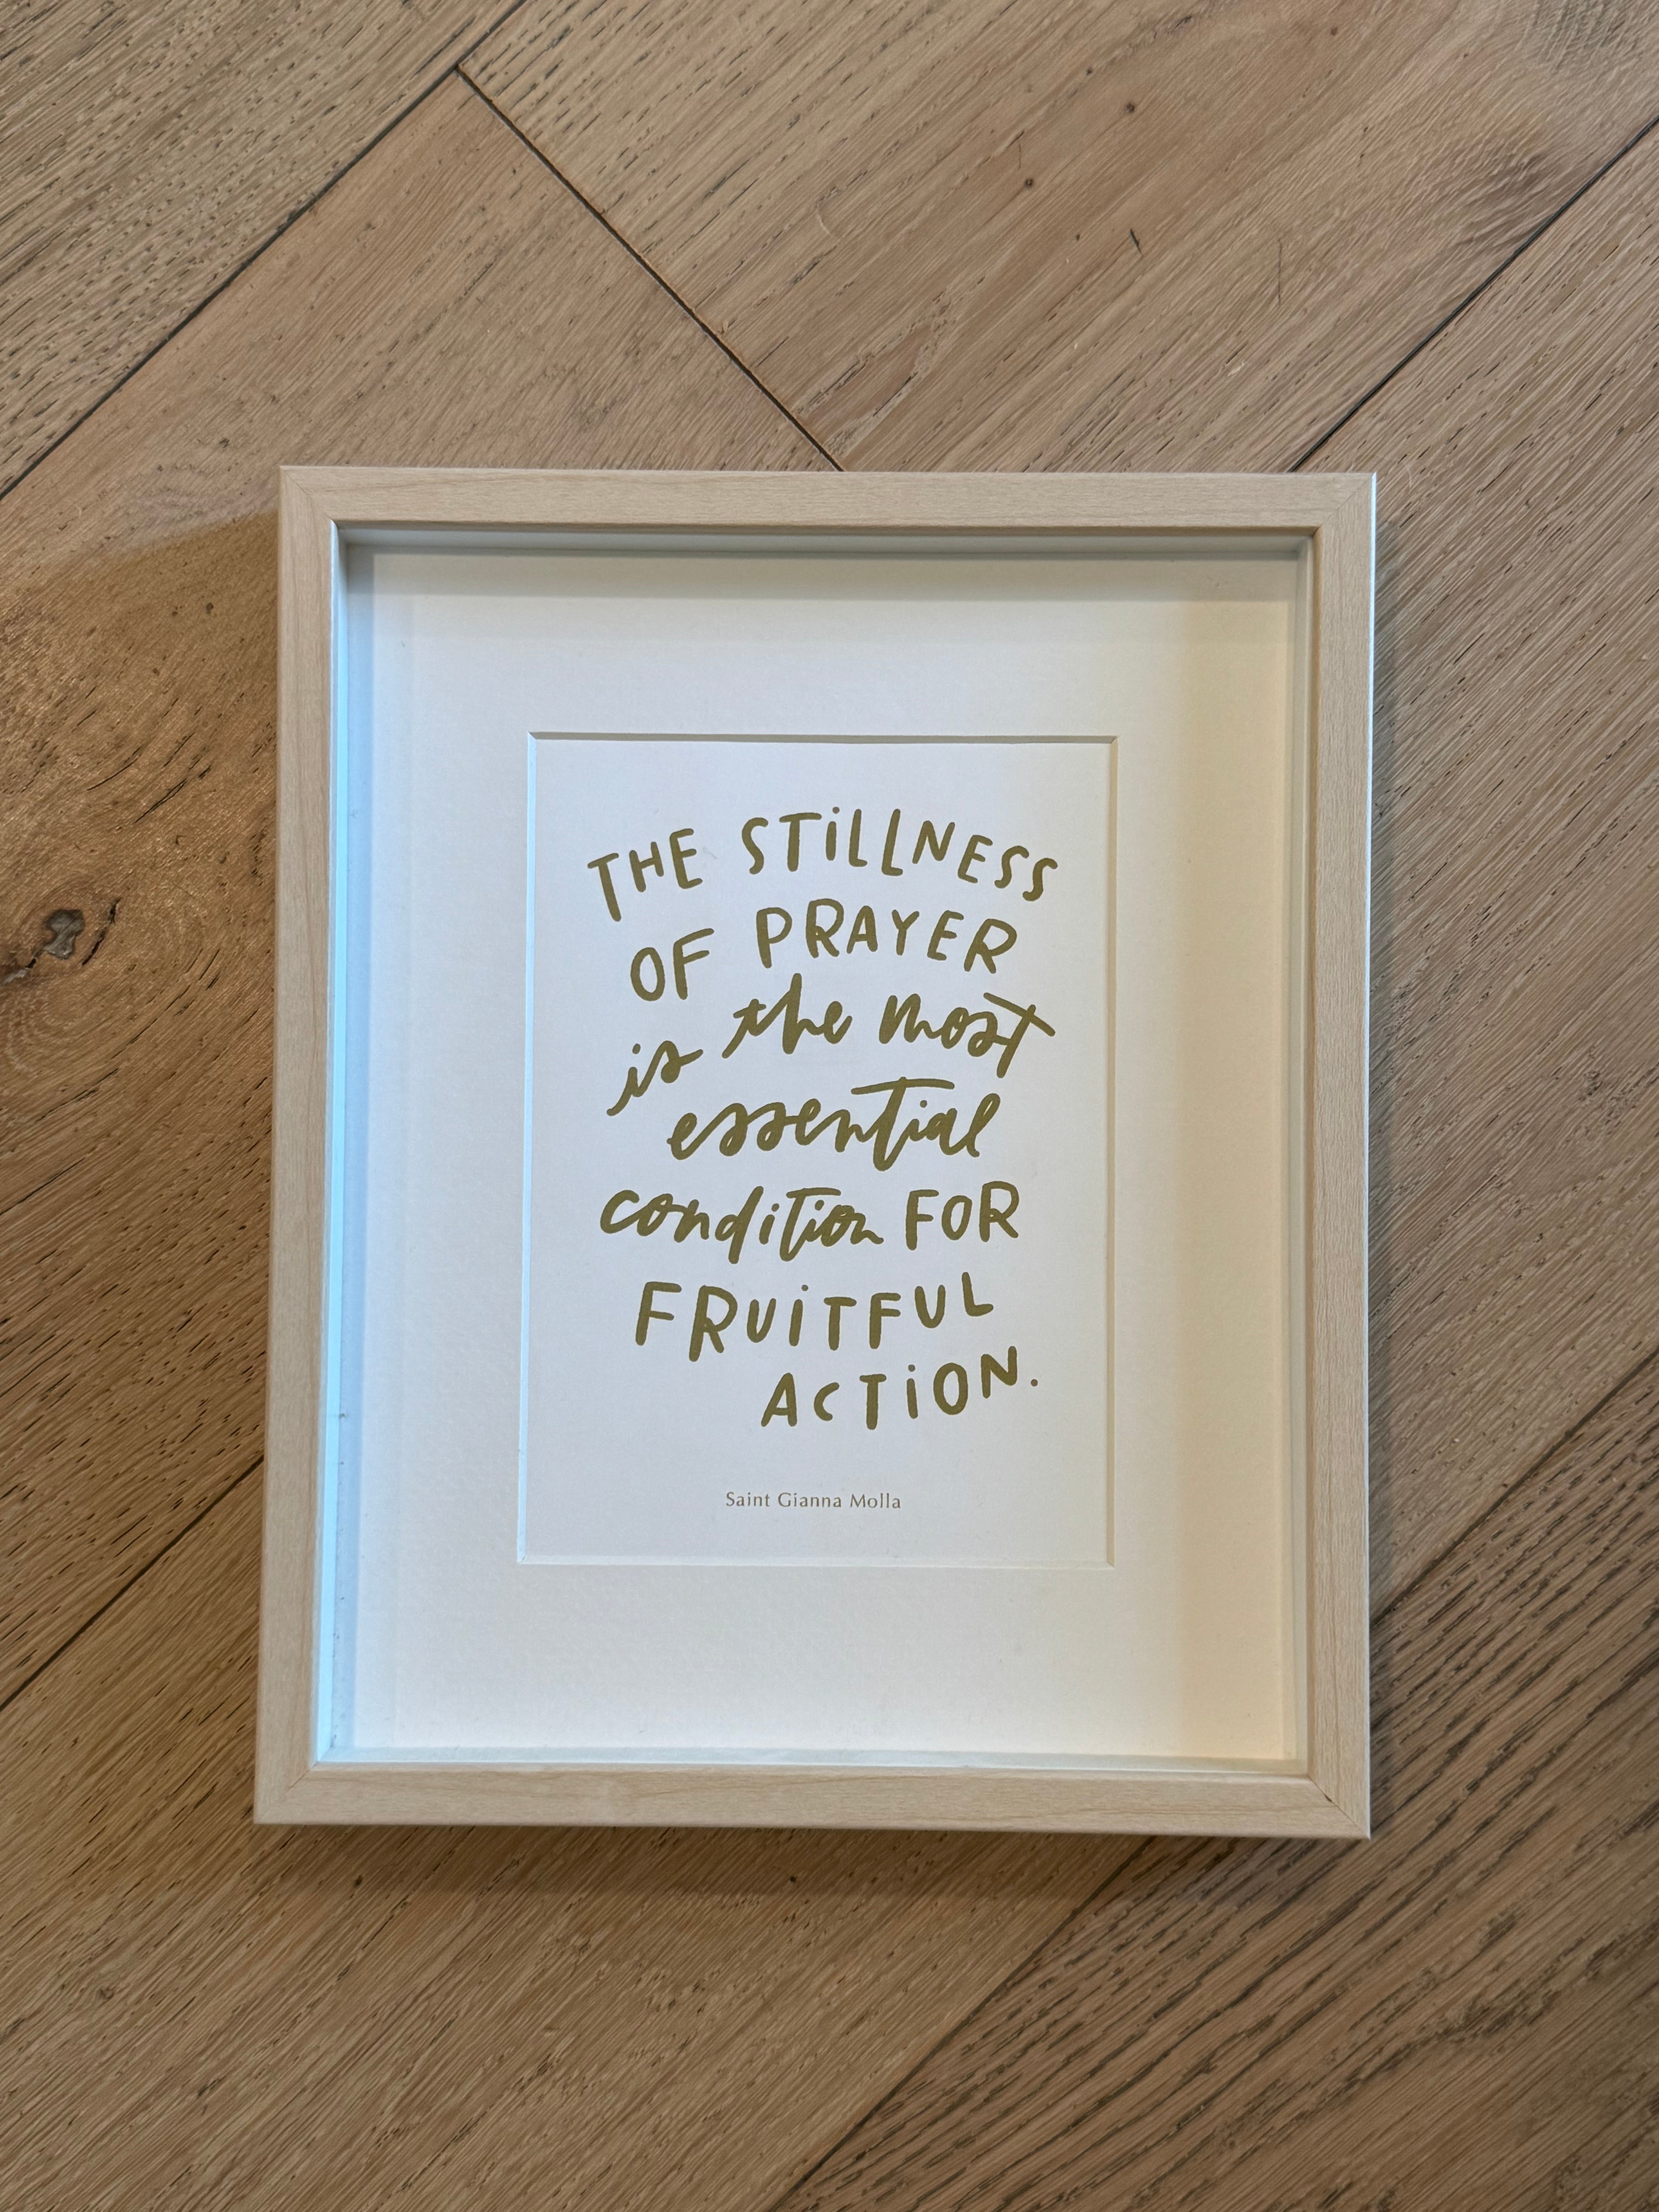 THE STiLLNESS
OF PRAYER
is the most
essential
condition FOR
FRUiTFUL
ACTiON.
Saint Gianna Molla